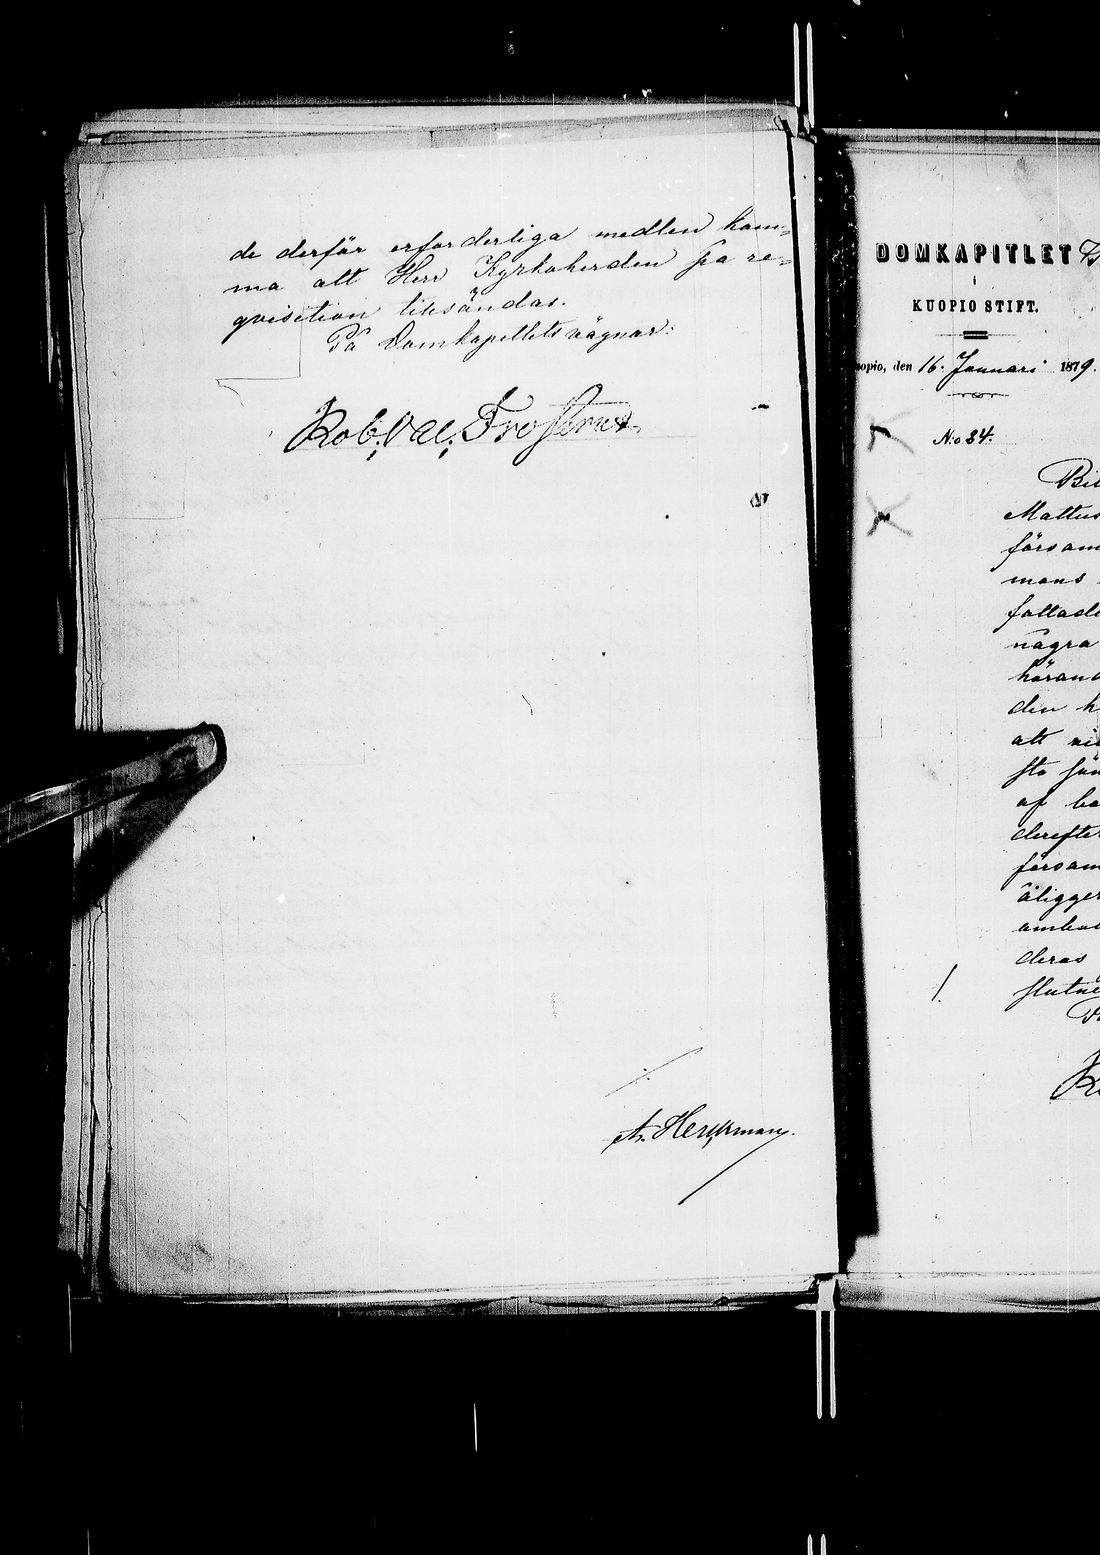 de derför erforderliga medlen kom-
ma att Herr Kyrkoherden på re-
qvisition tillsändas.
På Domkapitlets vägnar:
Rob. Val. Frosterus.
A. Herckman.
DOMKAPITLET
i
KUOPIO STIFT.
Kuopio, den 16. Januari 1879.
N:o 34.
Bil
Mattus
försam
mans
fattade
några
hörand
den h
att vi
sta sön
af ba
derefter
försam
åligger
ambu
deras
slutne